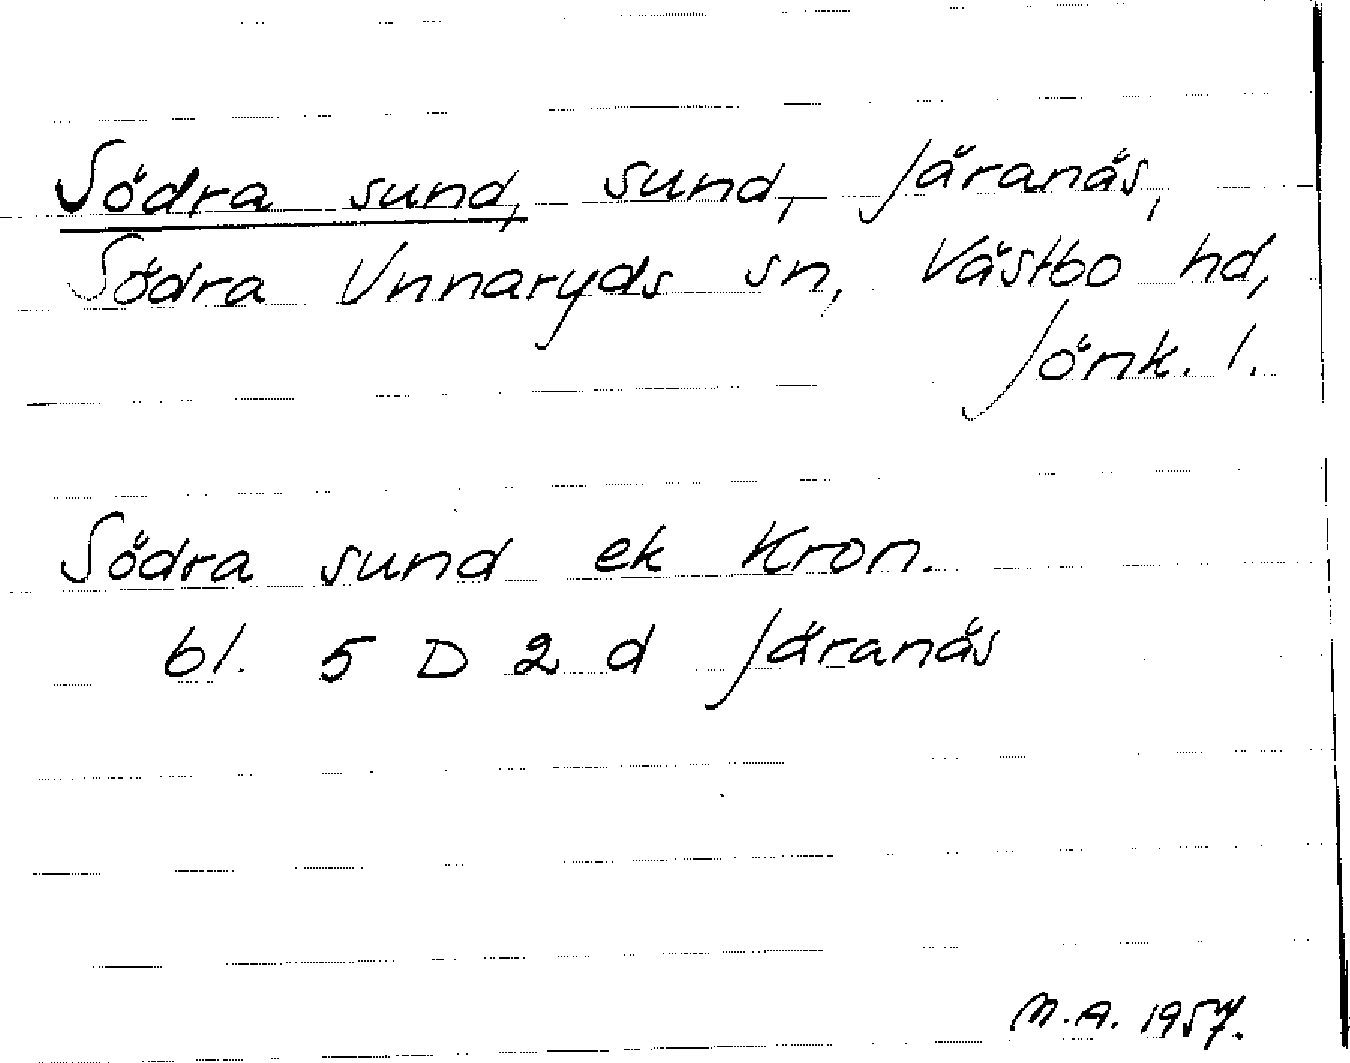 Södra sund, sund, Järanäs,
Södra Unnaryds sn, Västbo hd,
Jönk. l.
Södra sund ek Kron.
bl. 5 D 2 d Järanäs
M.A. 1957.